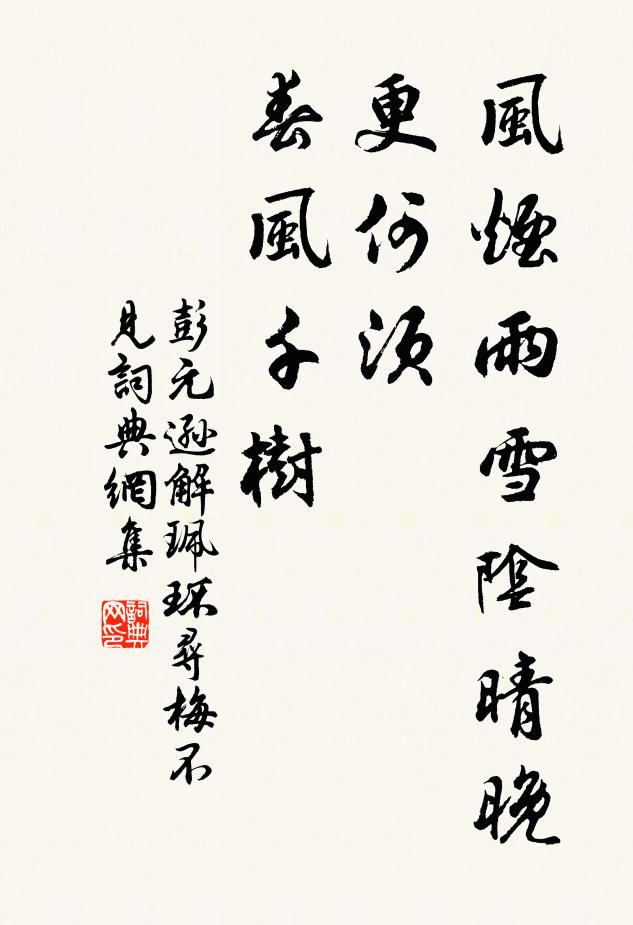 風煙雨雪陰晴晚
更何須
春風千樹
彭元遜解珮環尋梅不
見詞典網集
詞典
网印